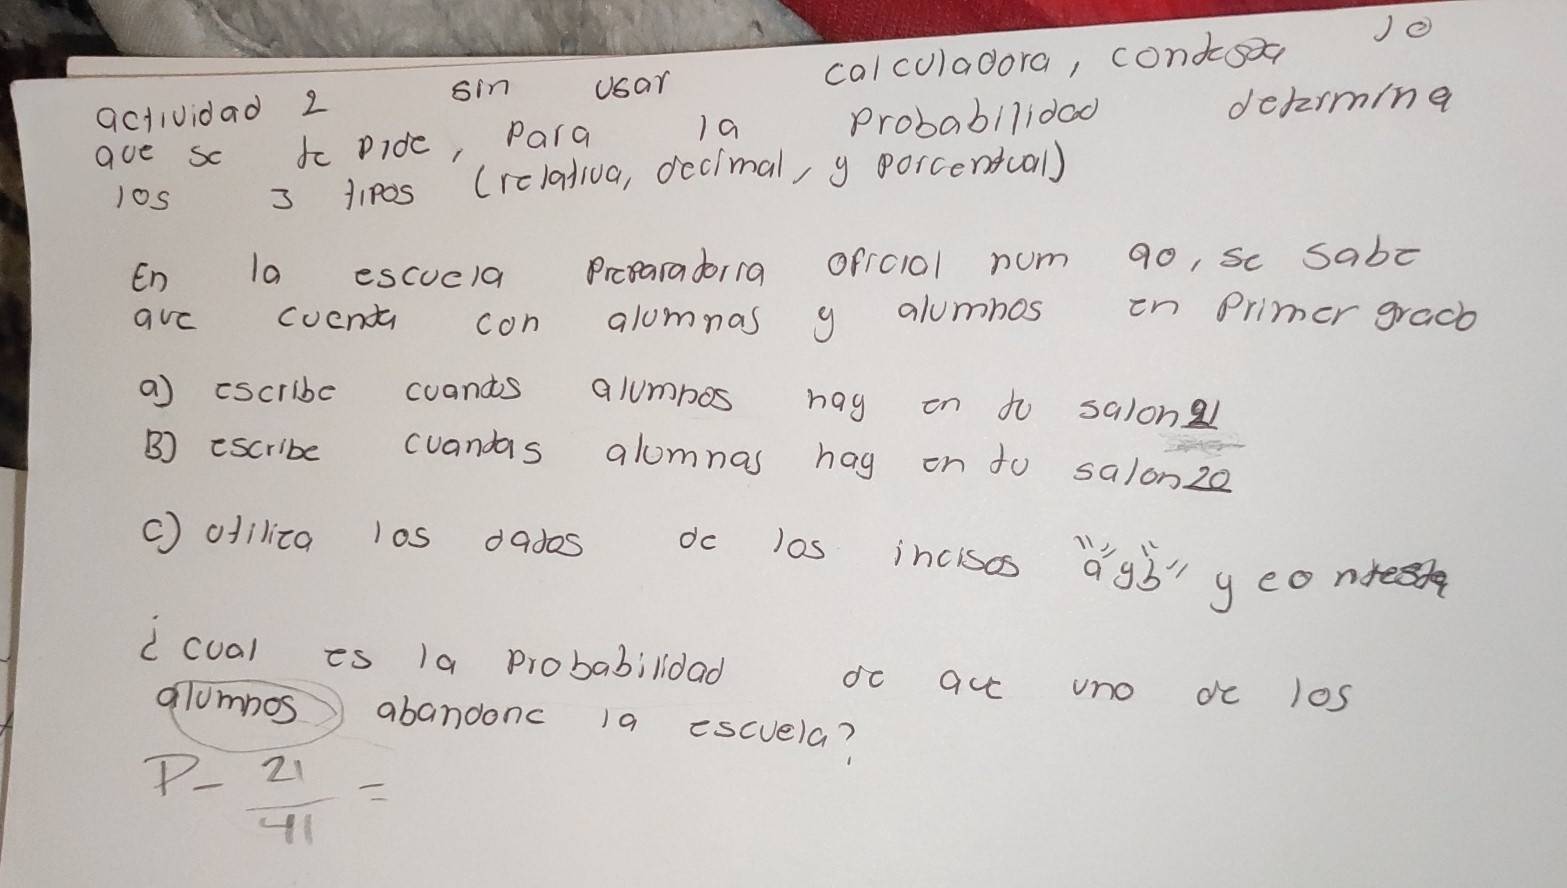 actividad 2 sin usar calculadora, contesta lo
que se te pide, para la probabilidad determina
los 3 tipos (relativa, decimal, y porcentual)
En la escuela Preparadorria oficial num 90, se sabe
que cuenta con alumnas y alumnos en Primer grado
a) escribe cuantos alumnos hay en tu salon 21
B) escribe cuantas alumnas hay en tu salon 20
c) utiliza los datos de los incisos "a" y "b" y contesta
¿cual es la probabilidad de que uno de los
alumnos abandone la escuela?
P- 21/41 =